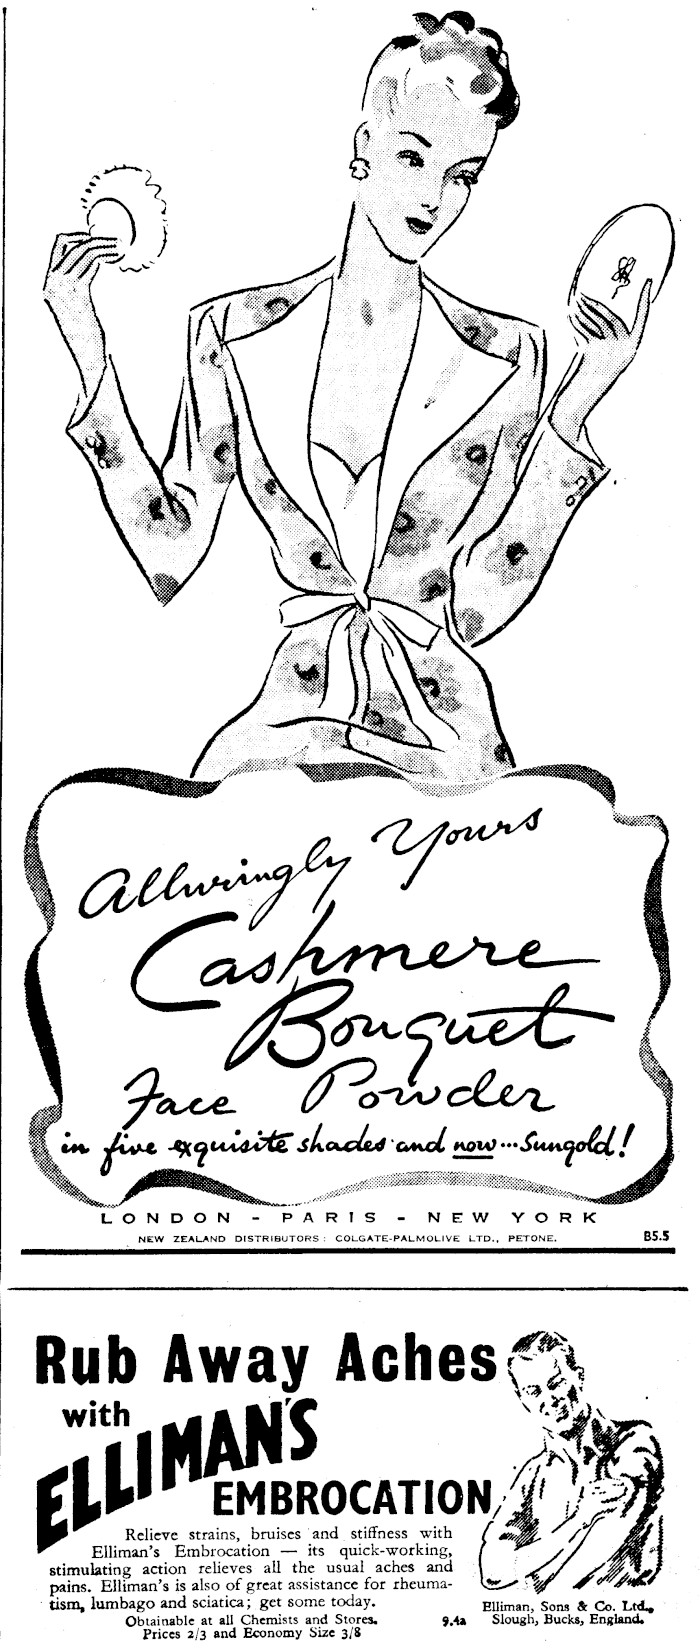 Alluringly Yours
Cashmere
Bouquet
Face Powder
in five exquisite shades and now... Sungold!
LONDON - PARIS - NEW YORK
NEW ZEALAND DISTRIBUTORS: COLGATE-PALMOLIVE LTD., PETONE.
B5.5
Rub Away Aches
with
ELLIMAN'S
EMBROCATION
Relieve strains, bruises and stiffness with
Elliman's Embrocation — its quick-working,
stimulating action relieves all the usual aches and
pains. Elliman's is also of great assistance for rheuma-
tism, lumbago and sciatica; get some today.
Obtainable at all Chemists and Stores.
Prices 2/3 and Economy Size 3/8
9.4a
Elliman, Sons & Co. Ltd.,
Slough, Bucks, England.